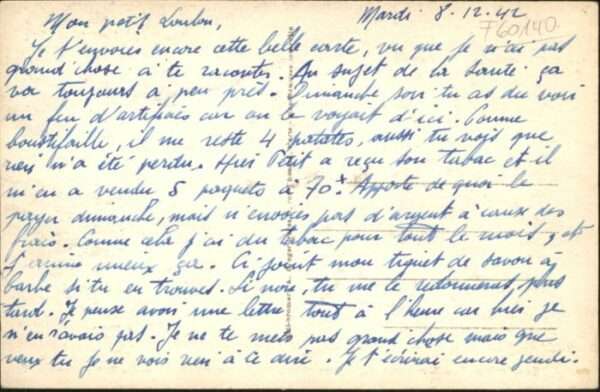 Mon petit Loulou, Mardi 8-12-42
F60140
Je t'envoies encore cette belle carte, vu que je n'ai pas
grand'chose à te raconter. Au sujet de la santé ça
va toujours à peu près. Dimanche soir tu as du voir
un feu d'artifices car on le voyait d'ici. Comme
boustifaille, il me reste 4 patattes, aussi tu vois que
rien n'a été perdu. Hier Petit a reçu son tabac et il
m'en a vendu 5 paquets à 70. Apporte de quoi le
payer dimanche, mais n'envoies pas d'argent à cause des
frais. Comme cela j'ai du tabac pour tout le mois, et
j'aime mieux ça. Ci joint mon tiquet de savon à
barbe si tu en trouves. Si non, tu me le redonneras plus
tard. Je pense avoir une lettre tout à l'heure car hier je
n'en avais pas. Je ne te mets pas grand chose mais que
veux tu je ne vois rien à te dire. Je t'écrirai encore jeudi.